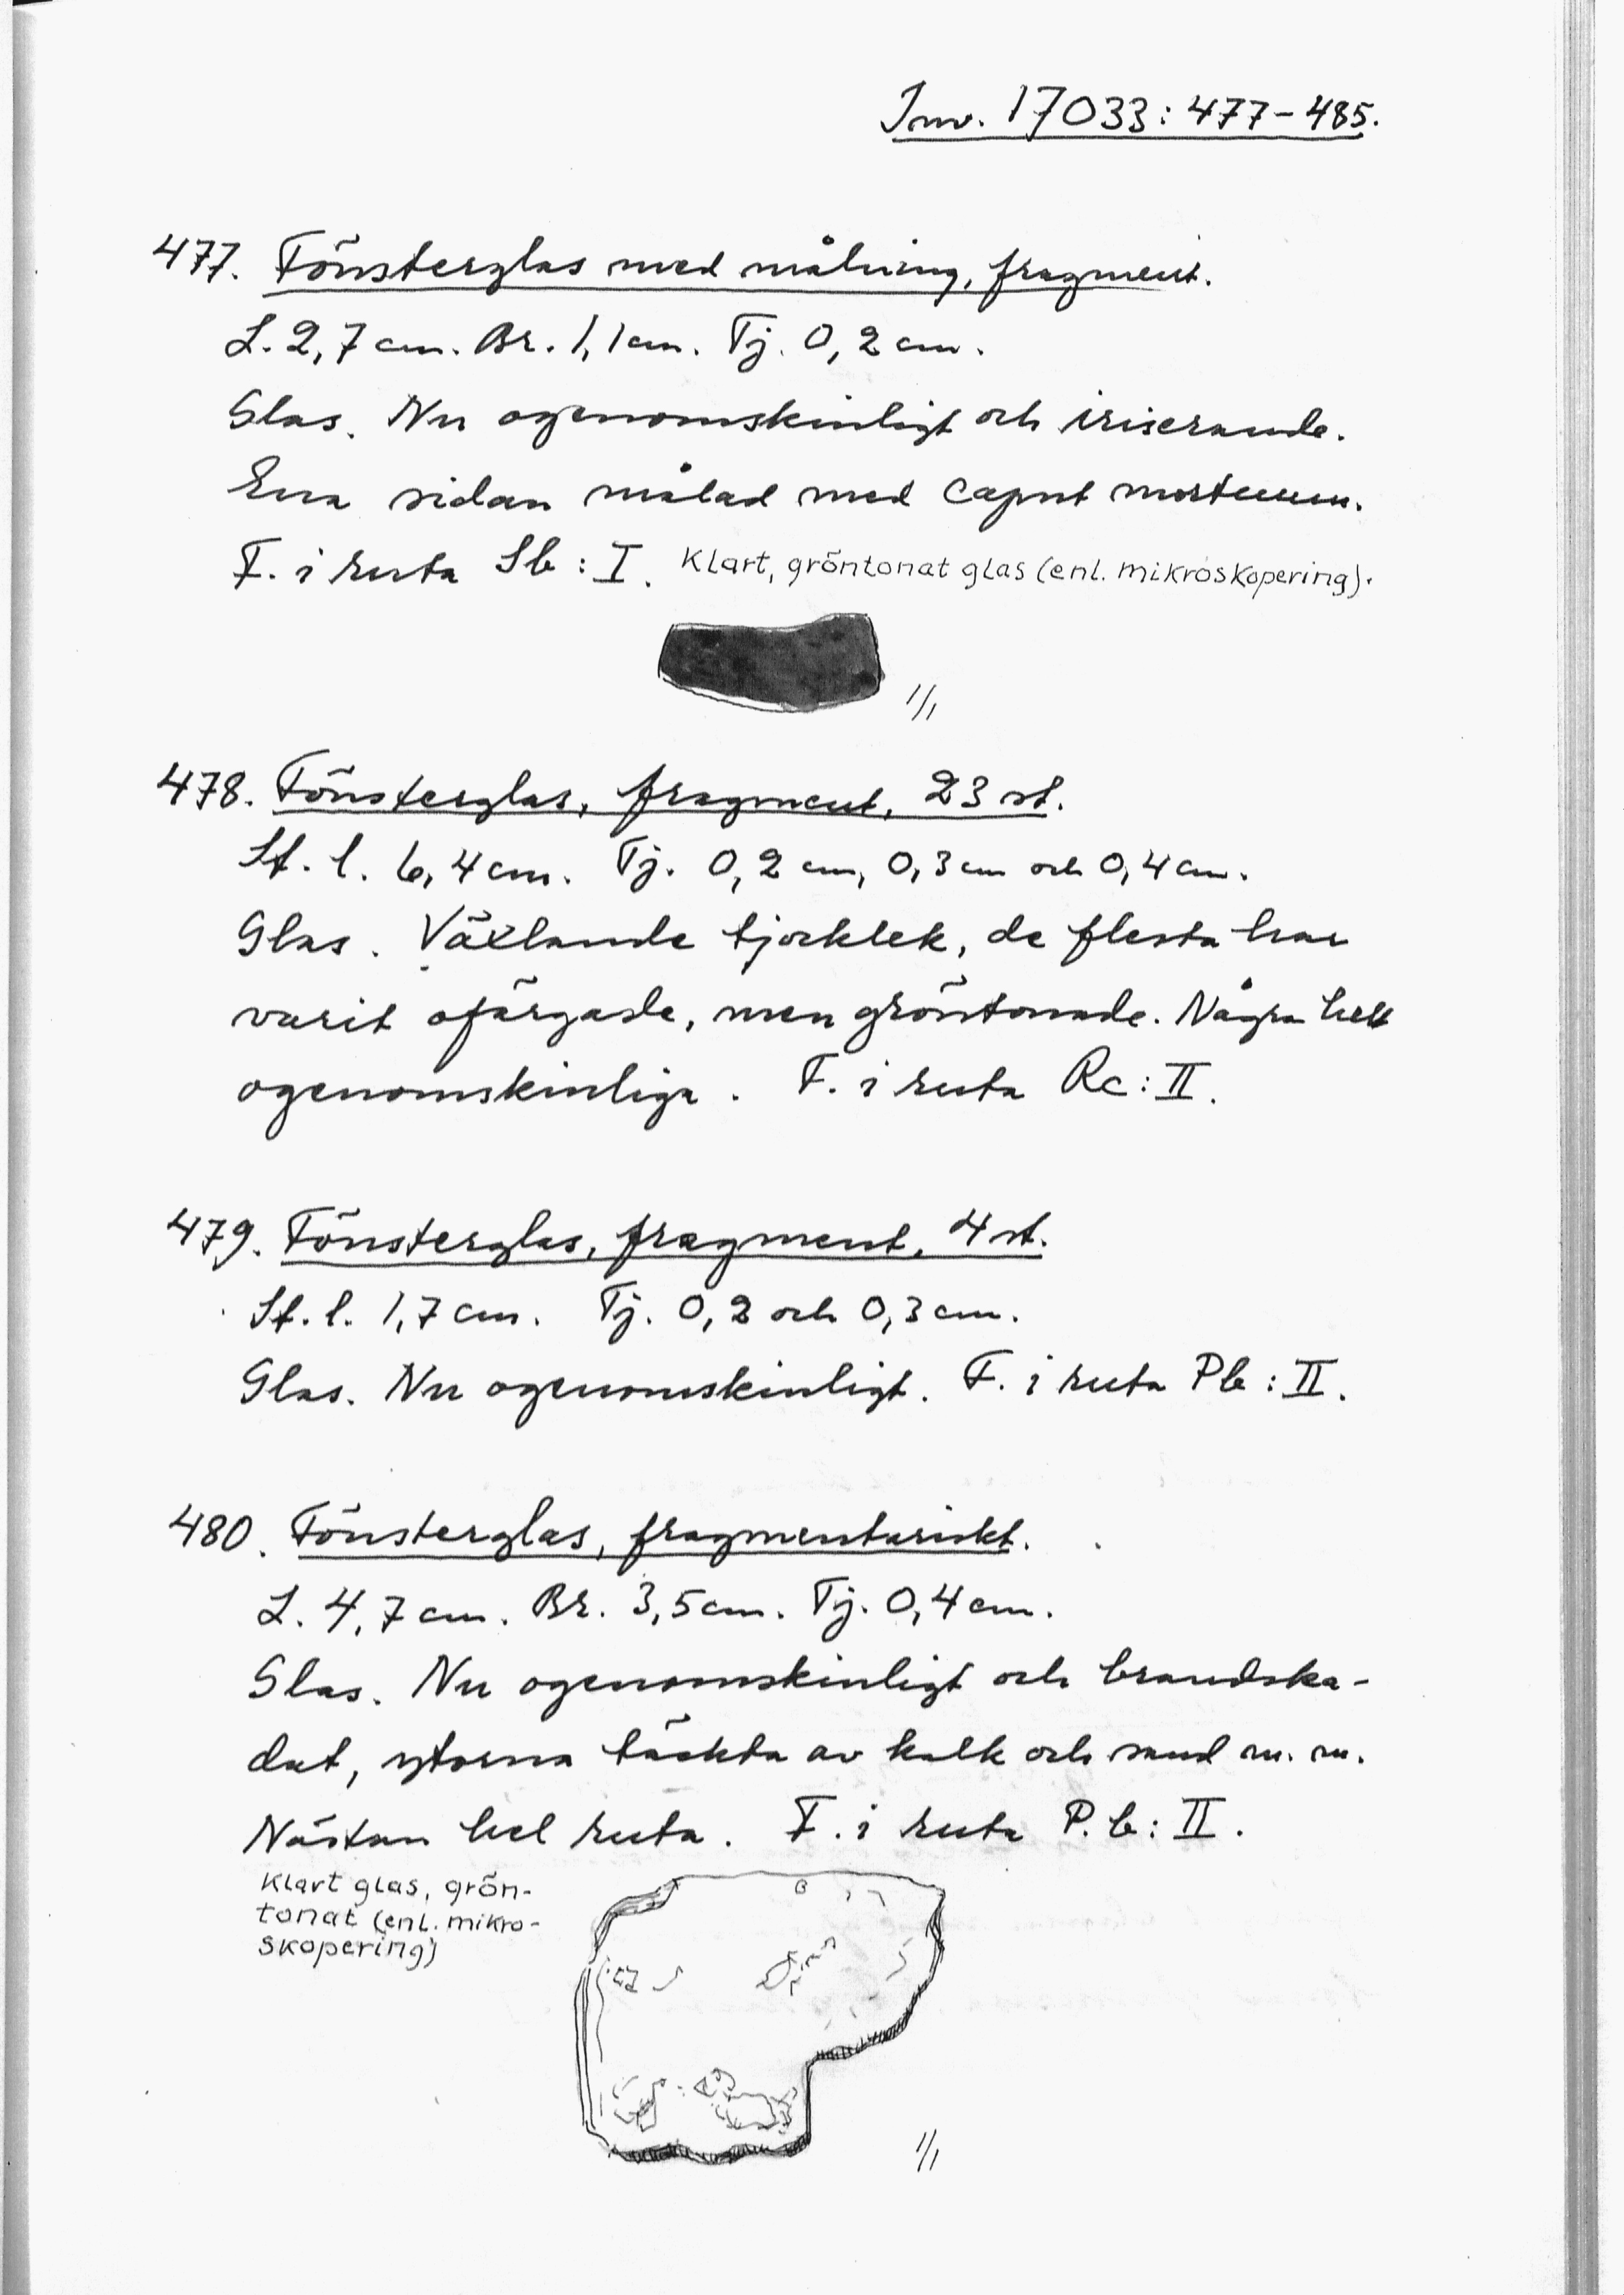 Inv. 17033: 477-485.
477. Fönsterglas med målning, fragment.
L. 2,7 cm. Br. 1,1 cm. Tj. 0,2 cm.
Glas. Nu ogenomskinligt och iriserande.
Ena sidan målad med caput mortuum.
F. i ruta Sb: I. Klart, gröntonat glas (enl. mikroskopering).
1/1
478. Fönsterglas, fragment, 23 st.
St. l. 6,4 cm. Tj. 0,2 cm, 0,3 cm och 0,4 cm.
Glas. Växlande tjocklek, de flesta har
varit ofärgade, men gröntonade. Några helt
ogenomskinliga. F. i ruta Rc: II.
479. Fönsterglas, fragment, 4 st.
St. l. 1,7 cm. Tj. 0,2 och 0,3 cm.
Glas. Nu ogenomskinligt. F. i ruta Pb: II.
480. Fönsterglas, fragmentariskt.
L. 4,7 cm. Br. 3,5 cm. Tj. 0,4 cm.
Glas. Nu ogenomskinligt och brandska-
dat, ytorna täckta av kalk och sand m. m.
Nästan hel ruta. F. i ruta P.b: II.
Klart glas, grön-
tonat (enl. mikro-
skopering)
1/1